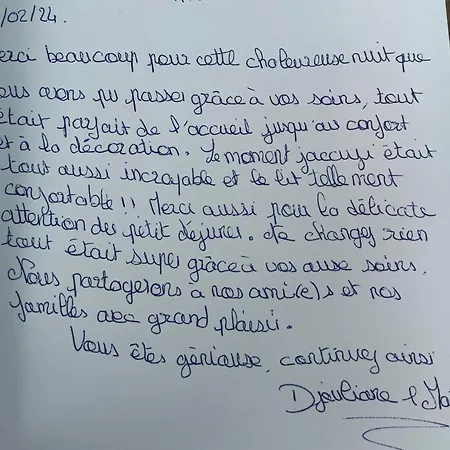 /02/24.
erci beaucoup pour cette chaleureuse nuit que
ous avons pu passer grâce à vos soins, tout
était parfait de l'accueil jusqu'au confort
et à la décoration. Le moment jaccuzi était
tout aussi incroyable et le lit tellement
confortable !! Merci aussi pour la délicate
attention du petit dejuner. Ne changez rien
tout était super grâce à vos soins.
Nous partagerons à nos ami(e)s et nos
familles avec grand plaisir.
Vous êtes géniause, continuez ainsi
Djouliane &